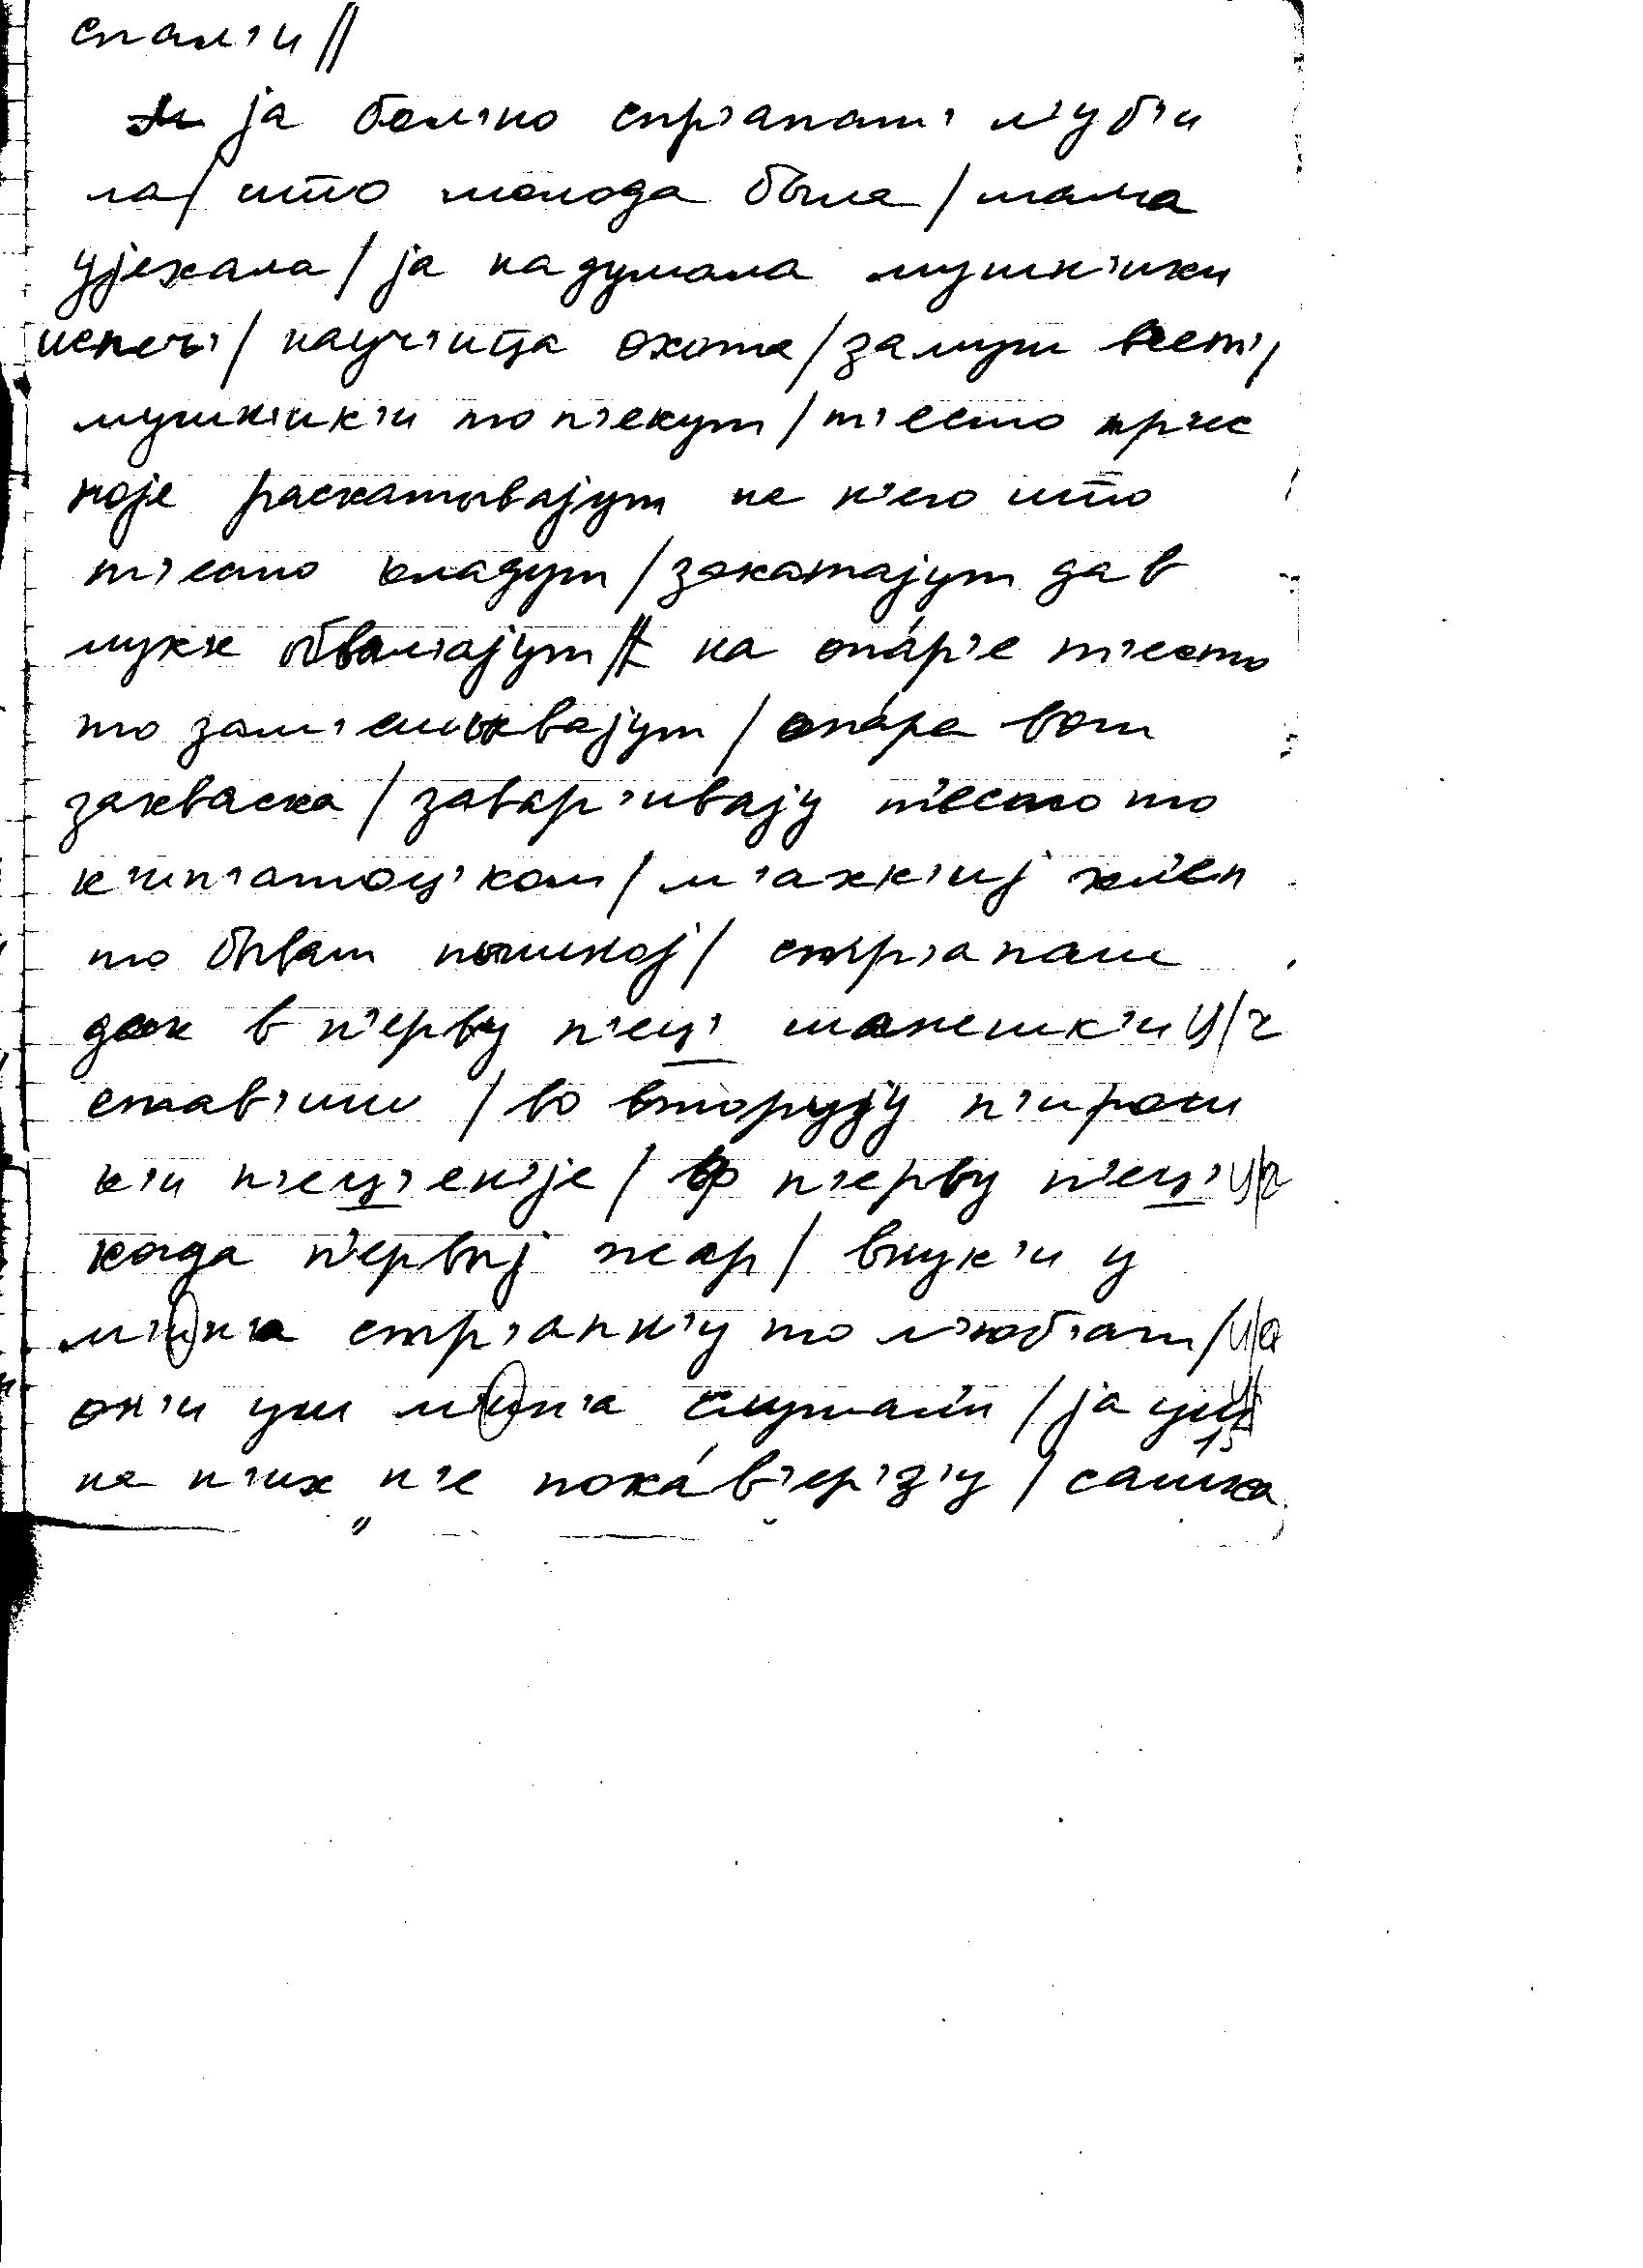 спал'и //
ja бол'но стр'апат' л'уб'и
ла / што молода была / мама
уjехала / ja надумала мушн'ики
испеч' / науч'ица охота / замуш вест'/
мушн'ик'и то п'екут / т'есто прэс
ноjе раскатывajут на н'его што
т'есто кладут / закатаjут да в
мук'е обвал'аjут // на опáр'е т'есто
то зам'ешывajут / опáра вот
закваска / завар'иваjу т'есто то
к'ип'аточ'ком / м'ахк'иj хл'еп
то быват пышноj / стр'апаш
дак в п'ерву п'ец' шанешк'и ц/ч
став'иш / во вторуjу п'ирош
к'и п'ец'ен'jе / в п'ерву п'ец' ц/ч
когда п'ервыj жар / внук'и у
м'ин'а стр'апн'у то л'юб'ат / и/а
он'и уш м'ин'а слушал'и / ja уш
на н'их н'е покáв'ер'з'у / сашка